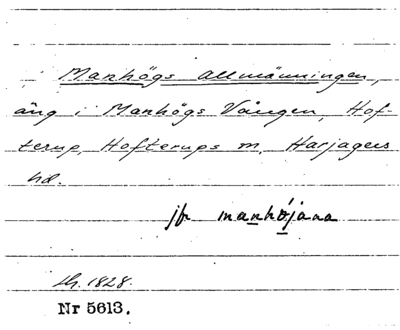 Manhögs allmänningen,
äng i Manhögs Vången, Hof-
terup, Hofterups sn, Harjagers
hd.
jfr manhöjana
Lh. 1828.
Nr 5613.